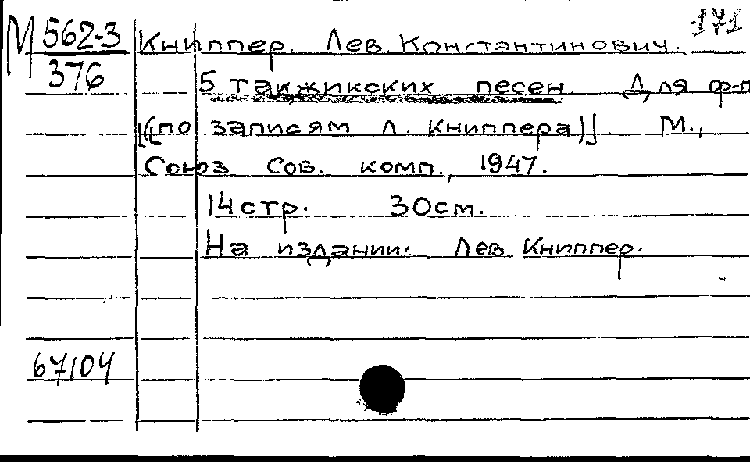 171
М 562-3
376
Книппер. Лев Константинович.
5 таджикских песен. Для ф-п
[(по записям Л. Книппера)]. М.,
Союз Сов. комп., 1947.
14 стр. 30 см.
На издании: Лев Книппер.
67104